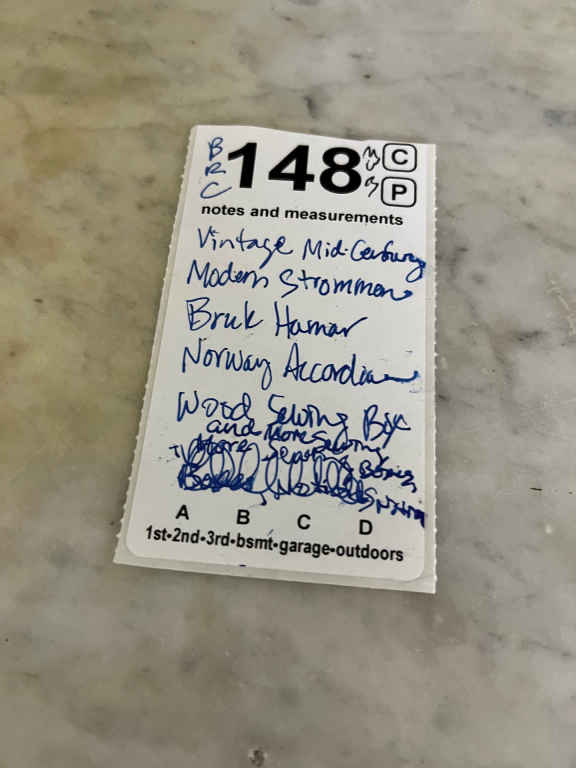 B
R
C
148
C
P
notes and measurements
Vintage Mid-Century
Modern Strommen
Bruk Hamar
Norway Accordian
Wood Sewing Box
and More Sewing
More
A B C D
1st-2nd-3rd-bsmt-garage-outdoors